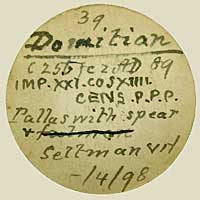 39
Domitian
C 255 fc 2 AD 89
IMP. XXI. COS XIIII.
CENS. P. P. P.
Pallas with spear
Seltman vrl
-/4/98